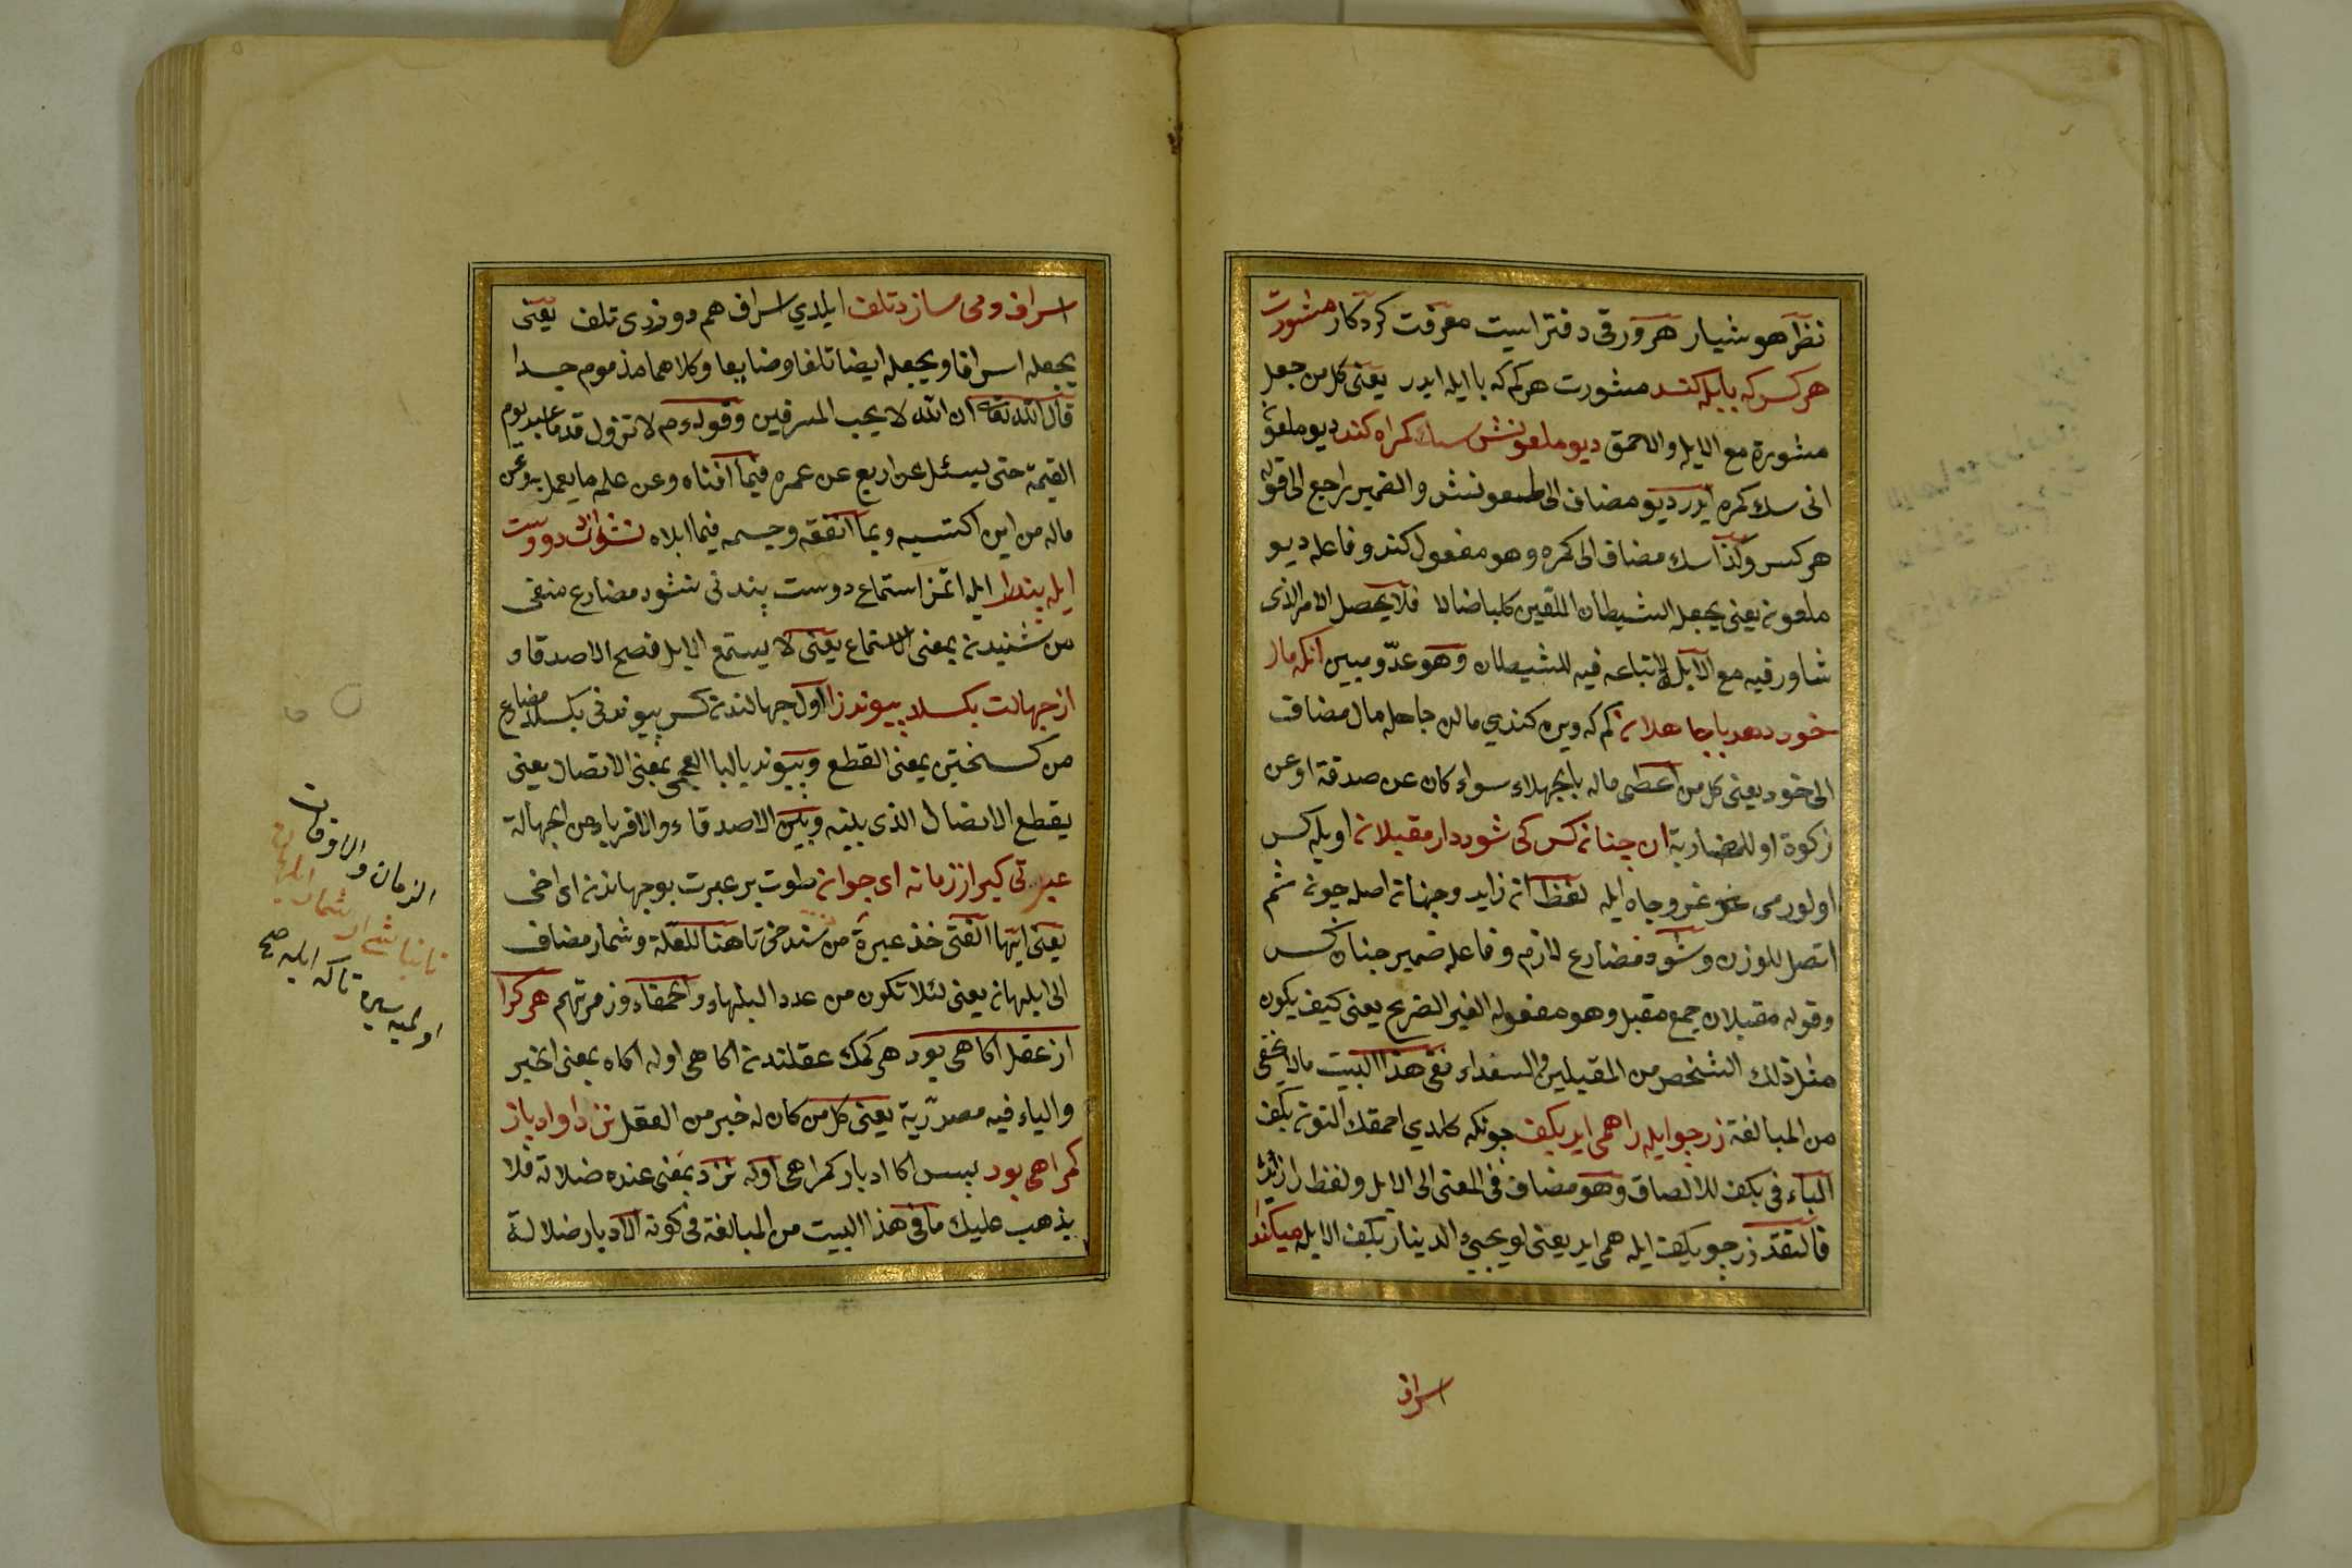 نظر هوشیار هر ورقی دفتر است معرفت کردکار مشورت
هر کس که با بله کند مشورت هر کم که با ایله ایدر یعنی کل من جعل
مشورة مع الابله والاحمق دیو ملعونش سبك کمراه کند دیو ملعونی
انی سبك کمره ایدر دیو مضاف الی ملعونش والضمیر راجع الی قوله
هر کس وکذا سبك مضاف الی کمره وهو مفعول کند وفاعله دیو
ملعونه یعنی یجعل الشیطان اللعین کلبا ضالا فلا یحصل الامر الذی
شاور فیه مع الابله لاتباعه فیه للشیطان وهو عدوّ مبین آنکه مال
خود دهد با جاهلانه کم که ویره کندی مالن جاهله مال مضاف
الی خود یعنی کل من اعطی ماله بالجهلاء سواء کان عن صدقة او عن
زکوة او للمضاربة ان چنانه کس کی شود دار مقبلانه اویله کس
اولور می غز وجاه ایله لفظ انه زاید وچنانه اصله چونه ثم
اتصل للوزن وشود مضارع لازم وفاعله ضمیر چنان کس
وقوله مقبلان جمع مقبل وهو مفعوله الغیر الصریح یعنی کیف یکون
مثل ذلك الشخص من المقبلین والسعداء ففی هذا البیت مالا یخفی
من المبالغة زر چو ابله را همی اید بکف چونکه کلدی احمقك التونه بکف
الباء فی بکف للالصاق وهو مضاف فی المعنی الی الابله ولفظ را زائد
فالتقد زر چو بکف ابله همی اید یعنی لو یجیئ الدینار بکف الابله میکند
اسراف
اسراف ومی سازد تلف ایلدی اسراف هم دوزدی تلف یعنی
یجعله اسرافا ویجعله ایضا تلفا وضایعا وکلاهما مذموم جدا
قال الله تعه ان الله لا یحب المسرفین وقوله عم لا تزول قدما عبد یوم
القیمة حتی یسئل عن اربع عن عمره فیما افناه وعن علمه ما یعمل به وعن
ماله من این اکتسبه وبما انفقه وجسمه فیما ابلاه نشنود دوست
ابله پند را ابله اتمز استماع دوست پندنی نشنود مضارع منفی
من شنیدنه بمعنی الاستماع یعنی لا یستمع الابله نصح الاصدقاء و
از جهالت بکسلد پیوند را اول جهالندنه کس پیوندنی بکسلد مضارع
من کسختین بمعنی القطع وپیوند بالباء العجمی بمعنی الاتصال یعنی
یقطع الاتصال الذی بینه وبین الاصدقاء والاقرباء من الجهالة
عبرتی کیر از زمانه ای جوانه طوت بر عبرت بو جهاندنه ای اخی
یعنی ایها الفتی خذ عبرة من تاهنا للعلة وشمار مضاف
الی ابلهانه یعنی لئلا تکون من عدد البلهاء والحمقاء وزمرتهم هر کرا
از عقل اکاهی بود هر کمك عقلندنه اکاهی اوله اکاه بمعنی الخبر
والیاء فیه مصدریة یعنی کل من کان له خبر من العقل نزد او ادبار
کمراهی بود بیس اکا ادبار کمراهی اوله نزد بمعنی عنده ضلالة فلا
یذهب علیك ما فی هذا البیت من المبالغة فی کونه الادبار ضلالة
الزمان والاوقات
اولمیه سیره تاکه ابله صح